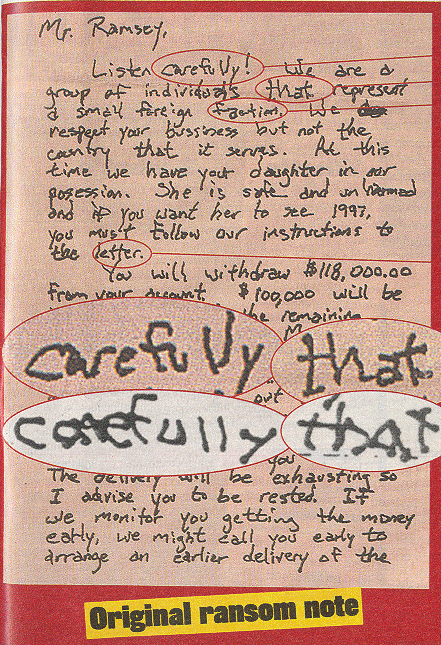 Mr. Ramsey,
Listen carefully! We are a
group of individuals that represent
a small foreign faction. We
respect your bussiness but not the
country that it serves. At this
time we have your daughter in our
posession. She is safe and un harmed
and if you want her to see 1997,
you must follow our instructions to
the letter.
You will withdraw $118,000.00
from your account. $100,000 will be
the remaining
carefully that
out
carefully that
you
The delivery will be exhausting so
I advise you to be rested. If
we monitor you getting the money
early, we might call you early to
arrange an earlier delivery of the
Original ransom note